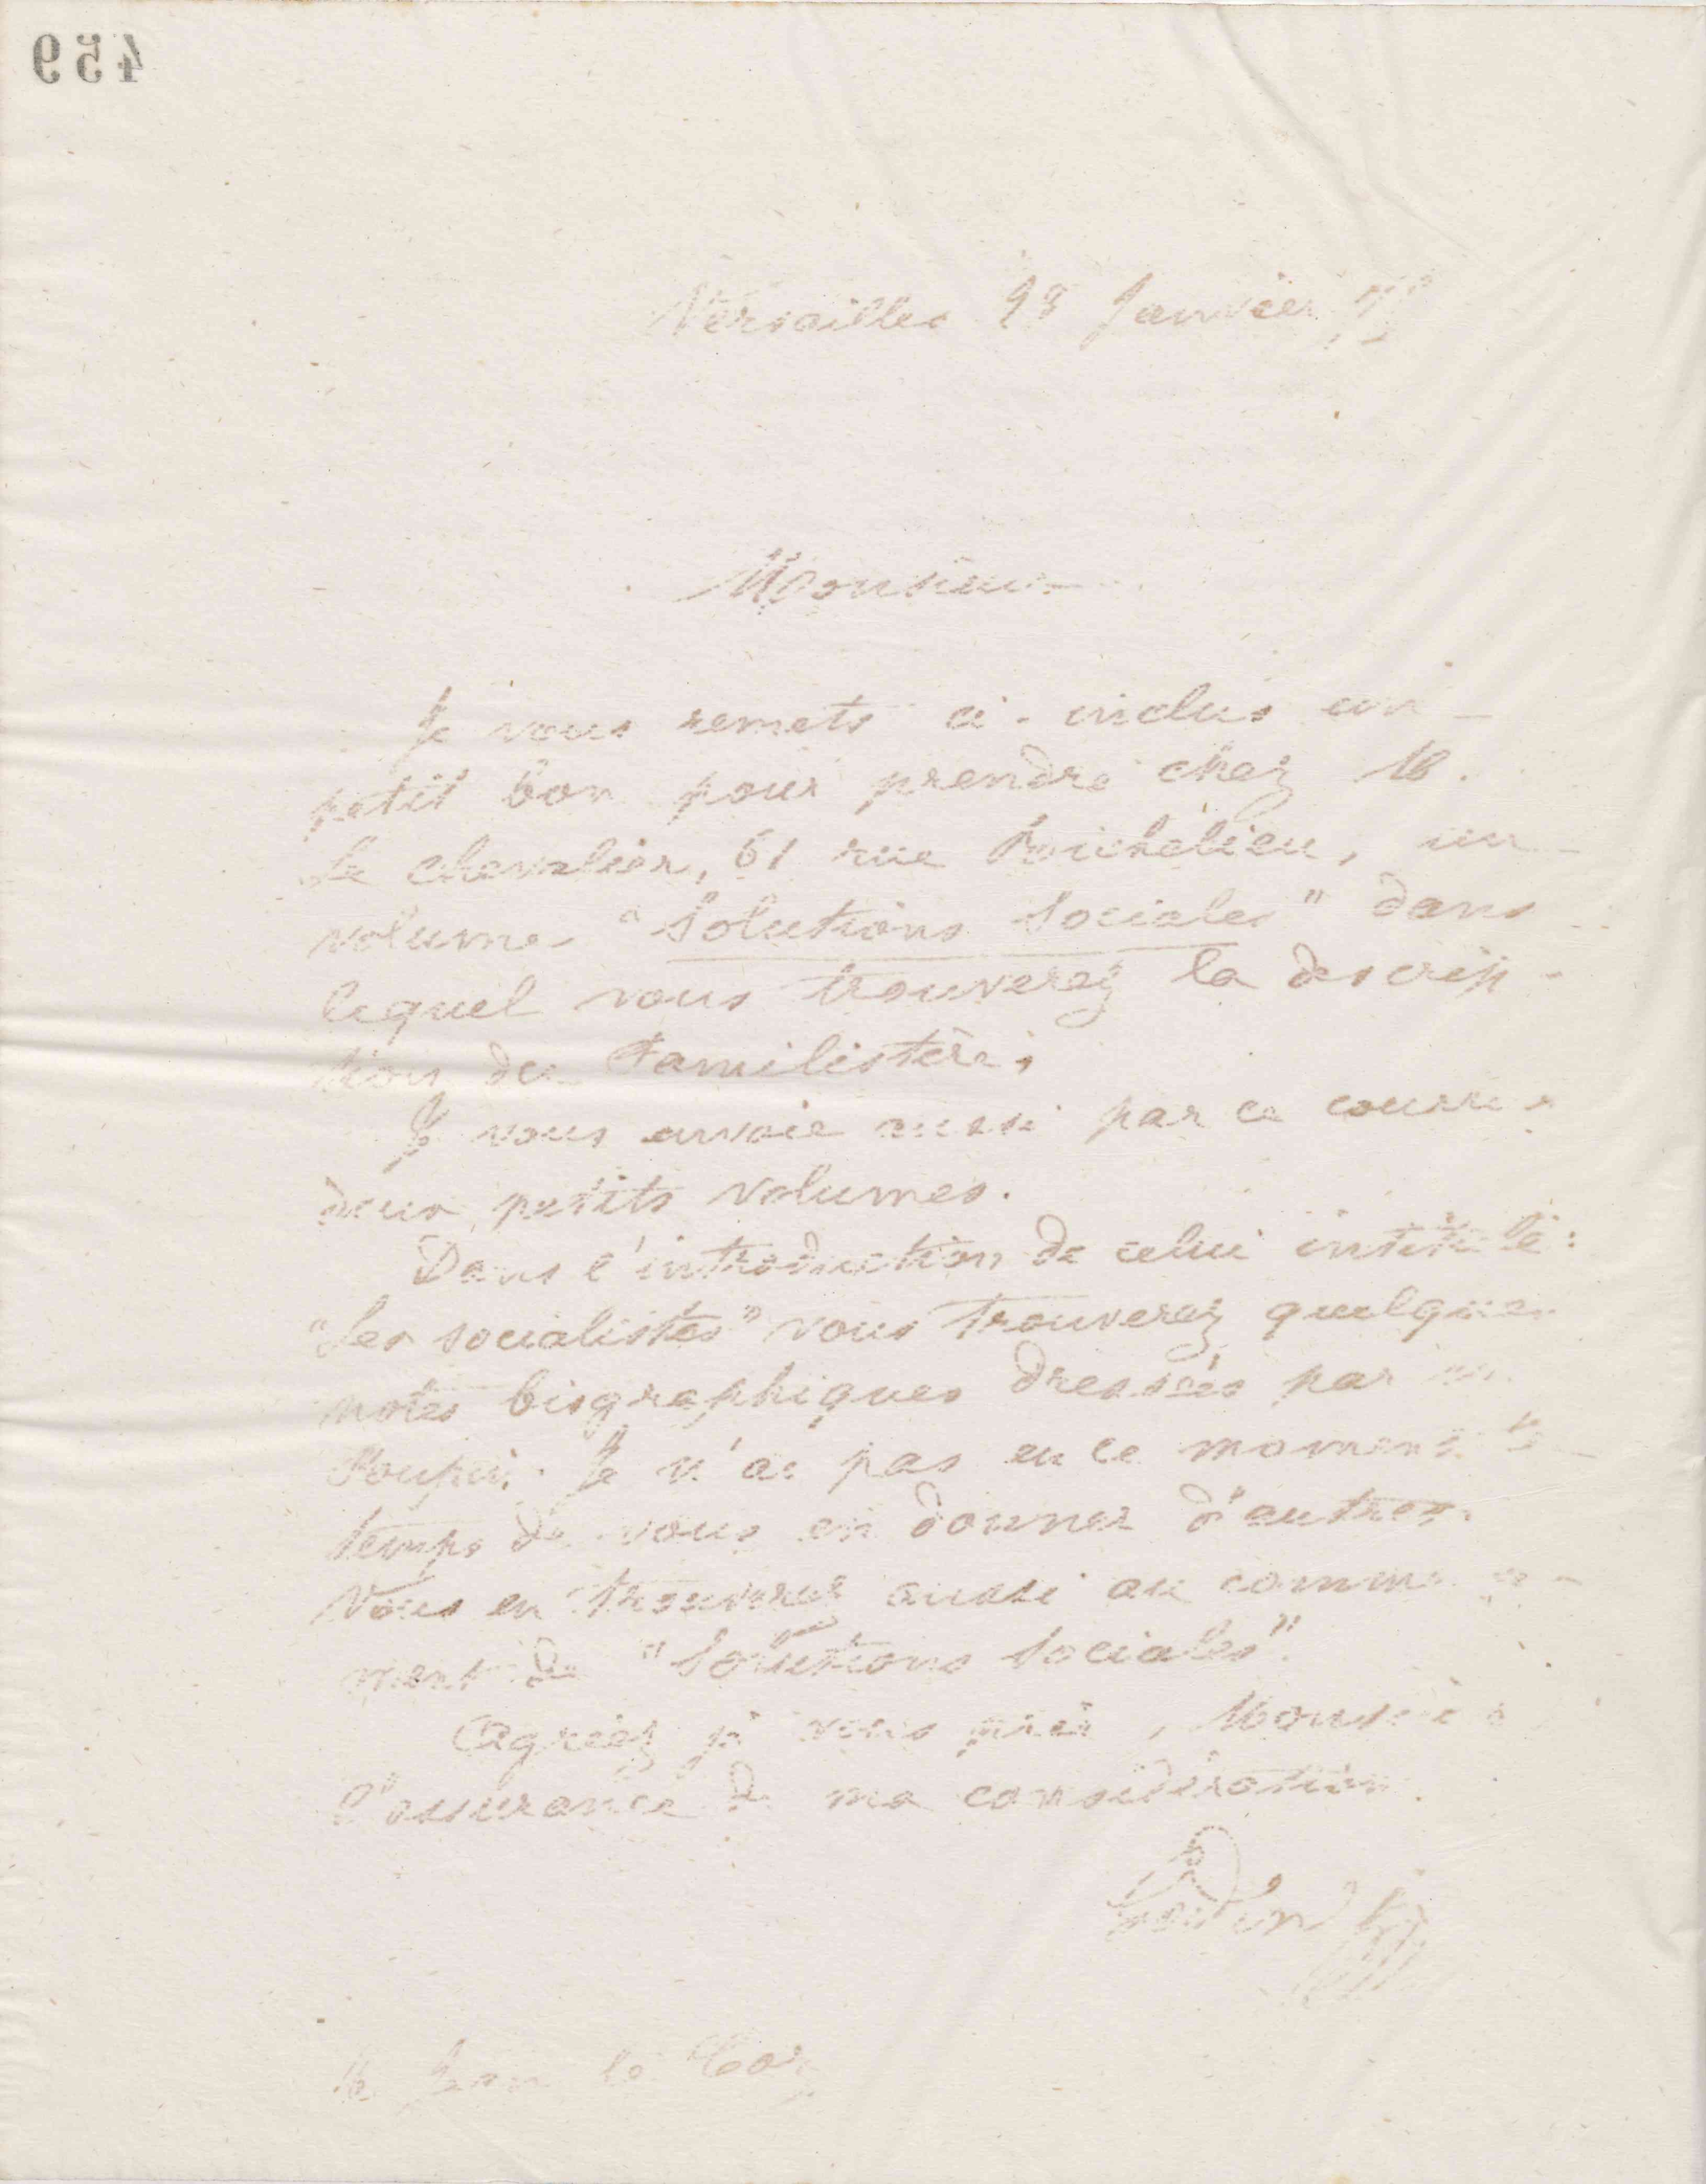 459
Versailles 28 Janvier 75
Monsieur
Je vous remets ci-inclus un
petit bon pour prendre chez M.
Le Chevalier, 61 rue Richelieu, un
volume "Solutions Sociales" dans
lequel vous trouverez la descrip-
tion du Familistère.
Je vous envoie aussi par ce courrier
deux petits volumes.
Dans l'introduction de celui intitulé :
"Les socialistes" vous trouverez quelques
notes biographiques dressées par
Je n'ai pas en ce moment le
temps de vous en donner d'autres.
Vous en trouverez aussi au commence-
ment de "Solutions Sociales".
Agréez je vous prie, Monsieur
l'assurance de ma considération.
Godin